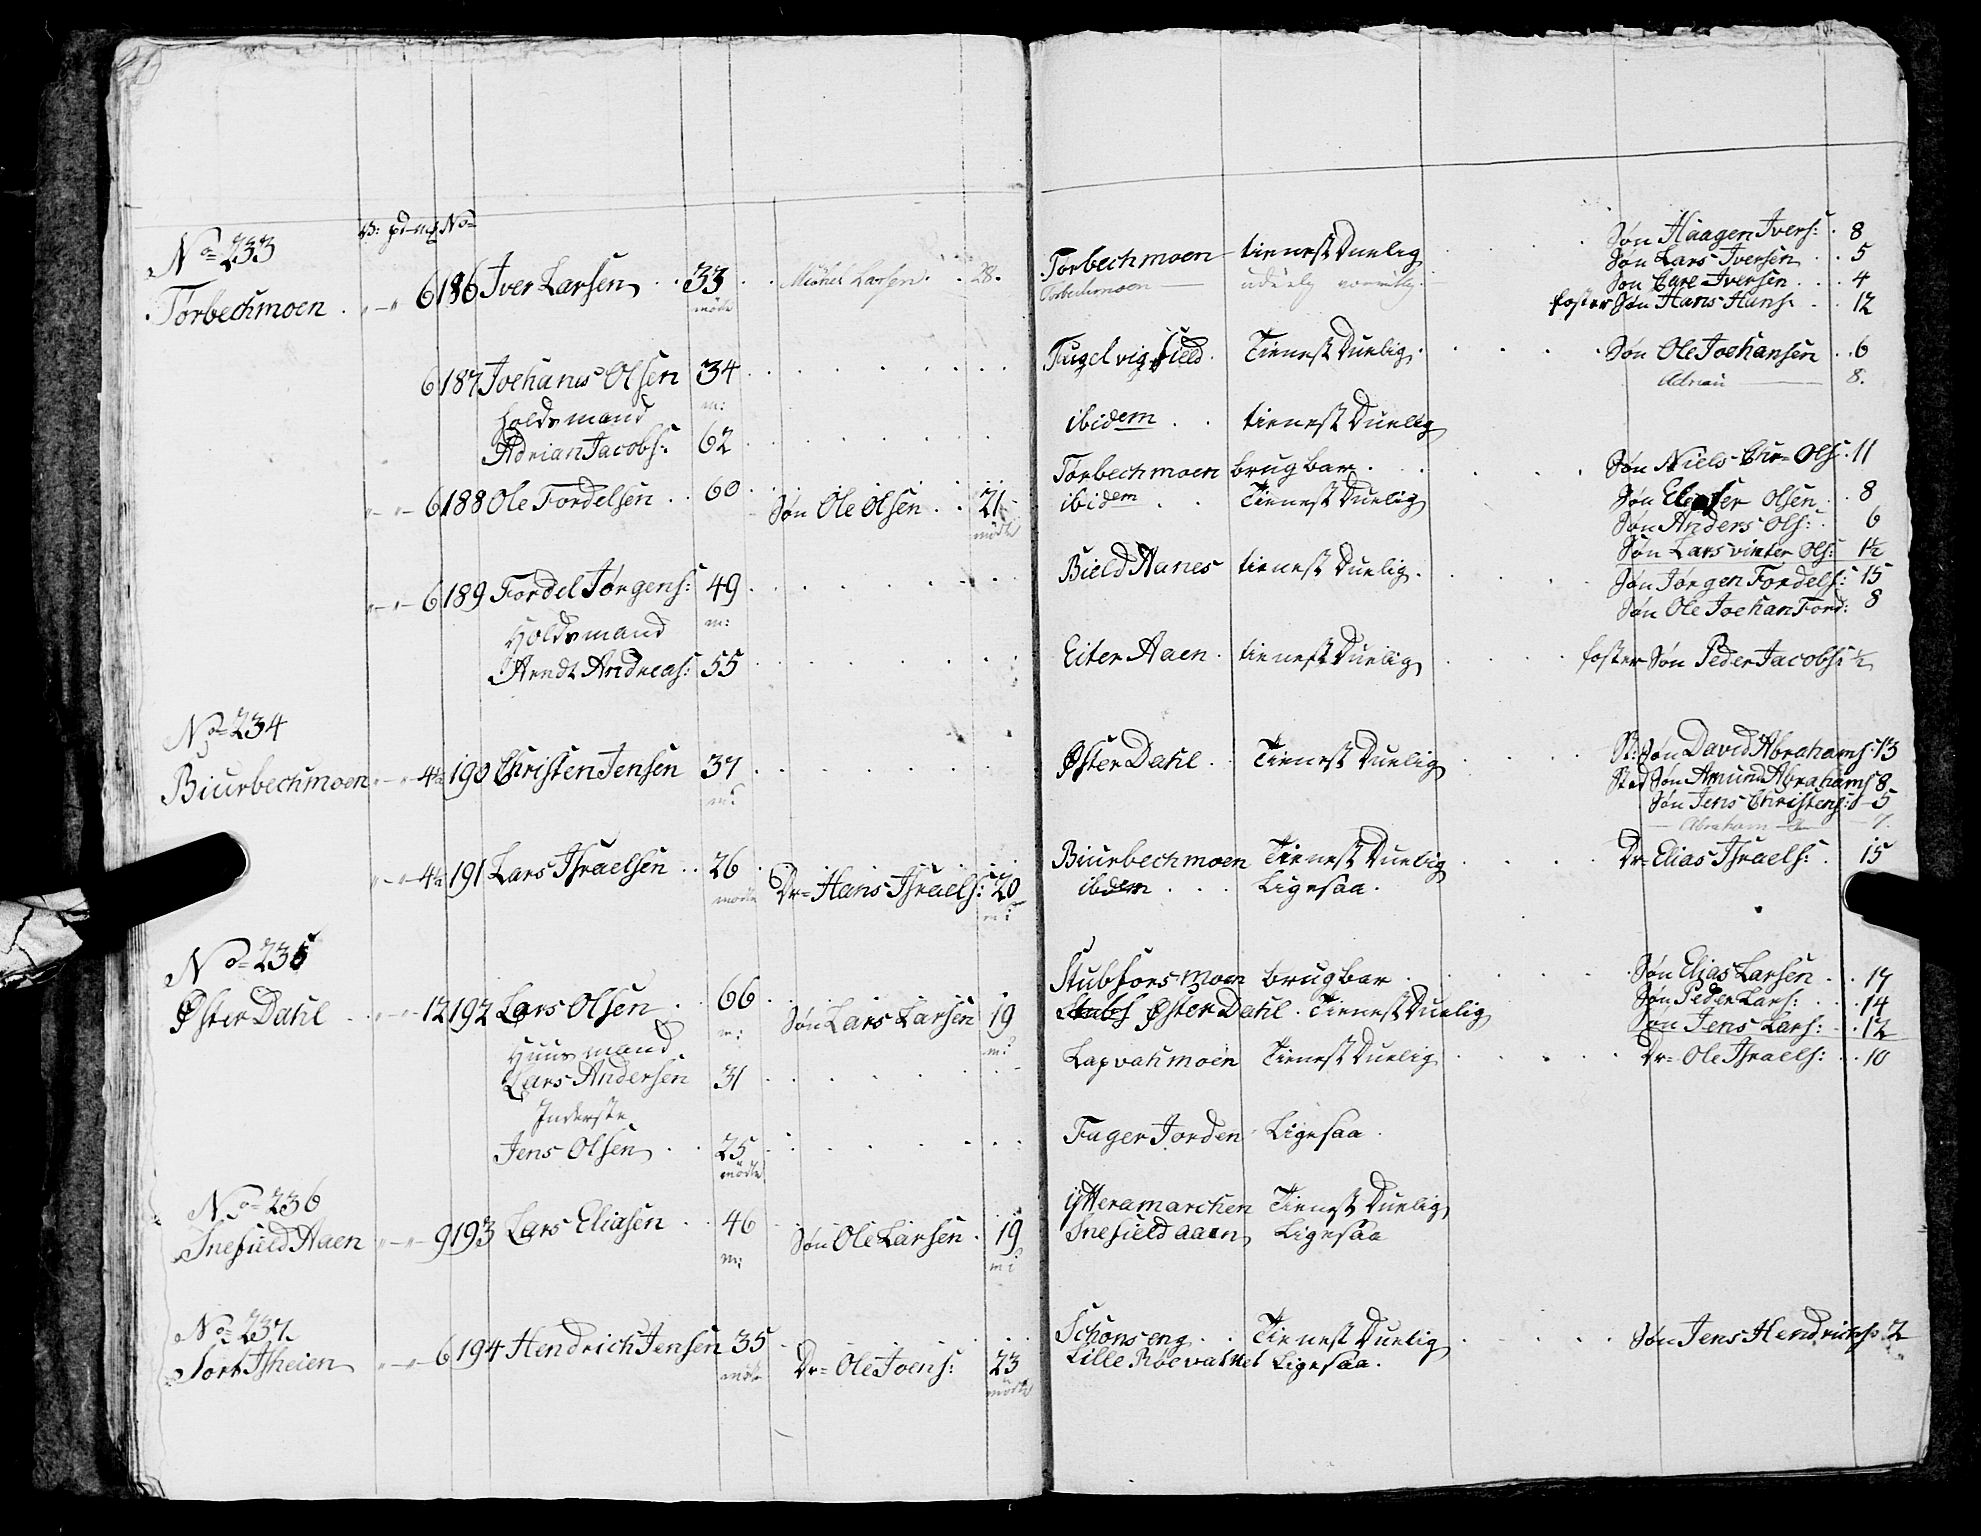 V: pd mg No
No 233
Törbechmoen 6 186 Iver Larsen 33 Michel Larsen 28. Törbechmoen tienest Duelig Søn Haagen Ivers: 8
møtte Törbechmoen Søn Lars Iversen 5
Søn Carl Iversen 4
foster Søn Hans Hans: 12
6 187 Joehanes Olsen 34 Fugelvigfield Tienest Duelig Søn Ole Joehansen 6
m: Adrian 8.
Holdsmand
Adrian Jacobs: 62 ibidem tienest Duelig
6 188 Ole Fordelsen 60 Törbechmoen brugbar Søn Niels Chr= Ols: 11
Søn Ole Olsen 21 ibidem Tienest Duelig Søn Olsen 8
møtte Søn Anders Ols: 6
Søn Lars vinter Ols: 1½
6 189 Fordel Jörgens: 49 Bield Aanes tienest Duelig Søn Jörgen Fordels: 15
m: Søn Ole Joehan Ford: 8
Holdsmand
Arndt Andreas: 55 Eiter Aaen tienest Duelig foster Søn Peder Jacobs: ½
No 234
Biurbechmoen 4½ 190 Christen Jensen 37 Øster Dahl Tienest Duelig St: Søn David Abrahams: 13
m: Sted Søn Amund Abrahams 8
Søn Jens Christens: 5
Abraham 7.
4½ 191 Lars Israelsen 26 Biurbechmoen Tienest Duelig Dr= Elias Israels: 15
møtte Dr= Hans Israels: 20 ibidem Ligesaa
m:
No 235
Øster Dahl 12 192 Lars Olsen 66 Stubfors moen brugbar Søn Elias Larsen 17
m: Søn Lars Larsen 19 Øster Dahl Tienest Duelig Søn Peder Lars: 14
m: Søn Jens Lars: 12
Huusmand
Lars Andersen 31 Lapvahmoen Tienest Duelig Dr= Ole Israels: 10
Inderste
Jens Olsen 25 Fager Jorden Ligesaa
møtte
No 236
Snefield Aaen 9 193 Lars Eliasen 46 Ytteramarchen Tienest Duelig
m: Søn Ole Larsen 19 Snefield aaen Ligesaa
m:
No 237
Sortsheien 6 194 Hendrich Jensen 35 Schonseng Tienest Duelig Søn Jens Hendrichs: 2
møtte Dr= Ole Joens: 23 Lille Röevatnet Ligesaa
møtte